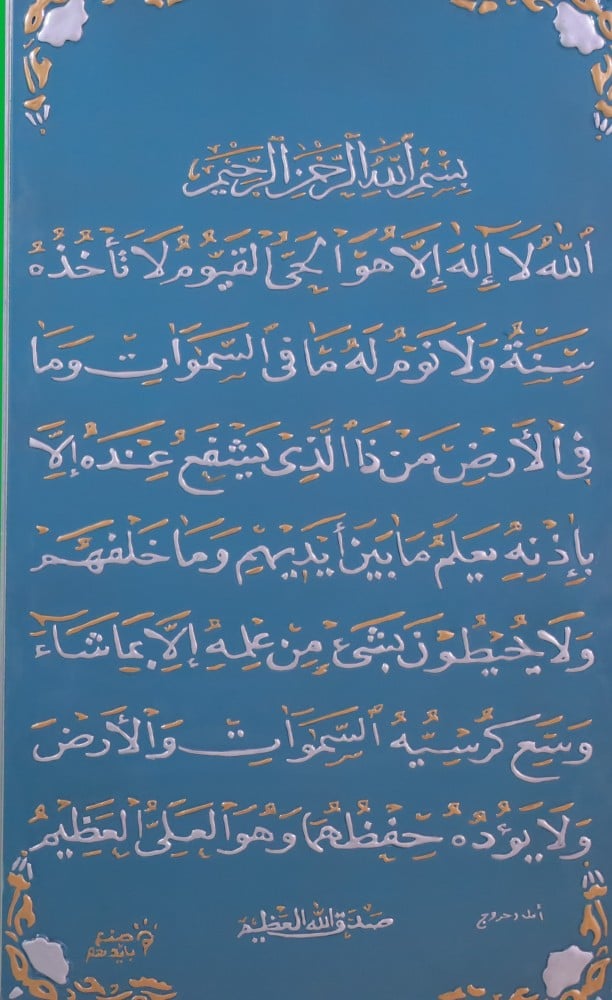 بِسْمِ ٱللَّهِ ٱلرَّحْمَٰنِ ٱلرَّحِيمِ
ٱللَّهُ لَآ إِلَٰهَ إِلَّا هُوَ ٱلْحَىُّ ٱلْقَيُّومُ لَا تَأْخُذُهُ
سِنَةٌ وَلَا نَوْمٌ لَهُ مَا فِى ٱلسَّمَوَاتِ وَمَا
فِى ٱلْأَرْضِ مَن ذَا ٱلَّذِى يَشْفَعُ عِندَهُ إِلَّا
بِإِذْنِهِ يَعْلَمُ مَا بَيْنَ أَيْدِيهِمْ وَمَا خَلْفَهُمْ
وَلَا يُحِيطُونَ بِشَىْءٍ مِّنْ عِلْمِهِ إِلَّا بِمَا شَآءَ
وَسِعَ كُرْسِيُّهُ ٱلسَّمَوَاتِ وَٱلْأَرْضَ
وَلَا يَؤُدُهُ حِفْظُهُمَا وَهُوَ ٱلْعَلِىُّ ٱلْعَظِيمُ
صدق الله العظيم
صنع